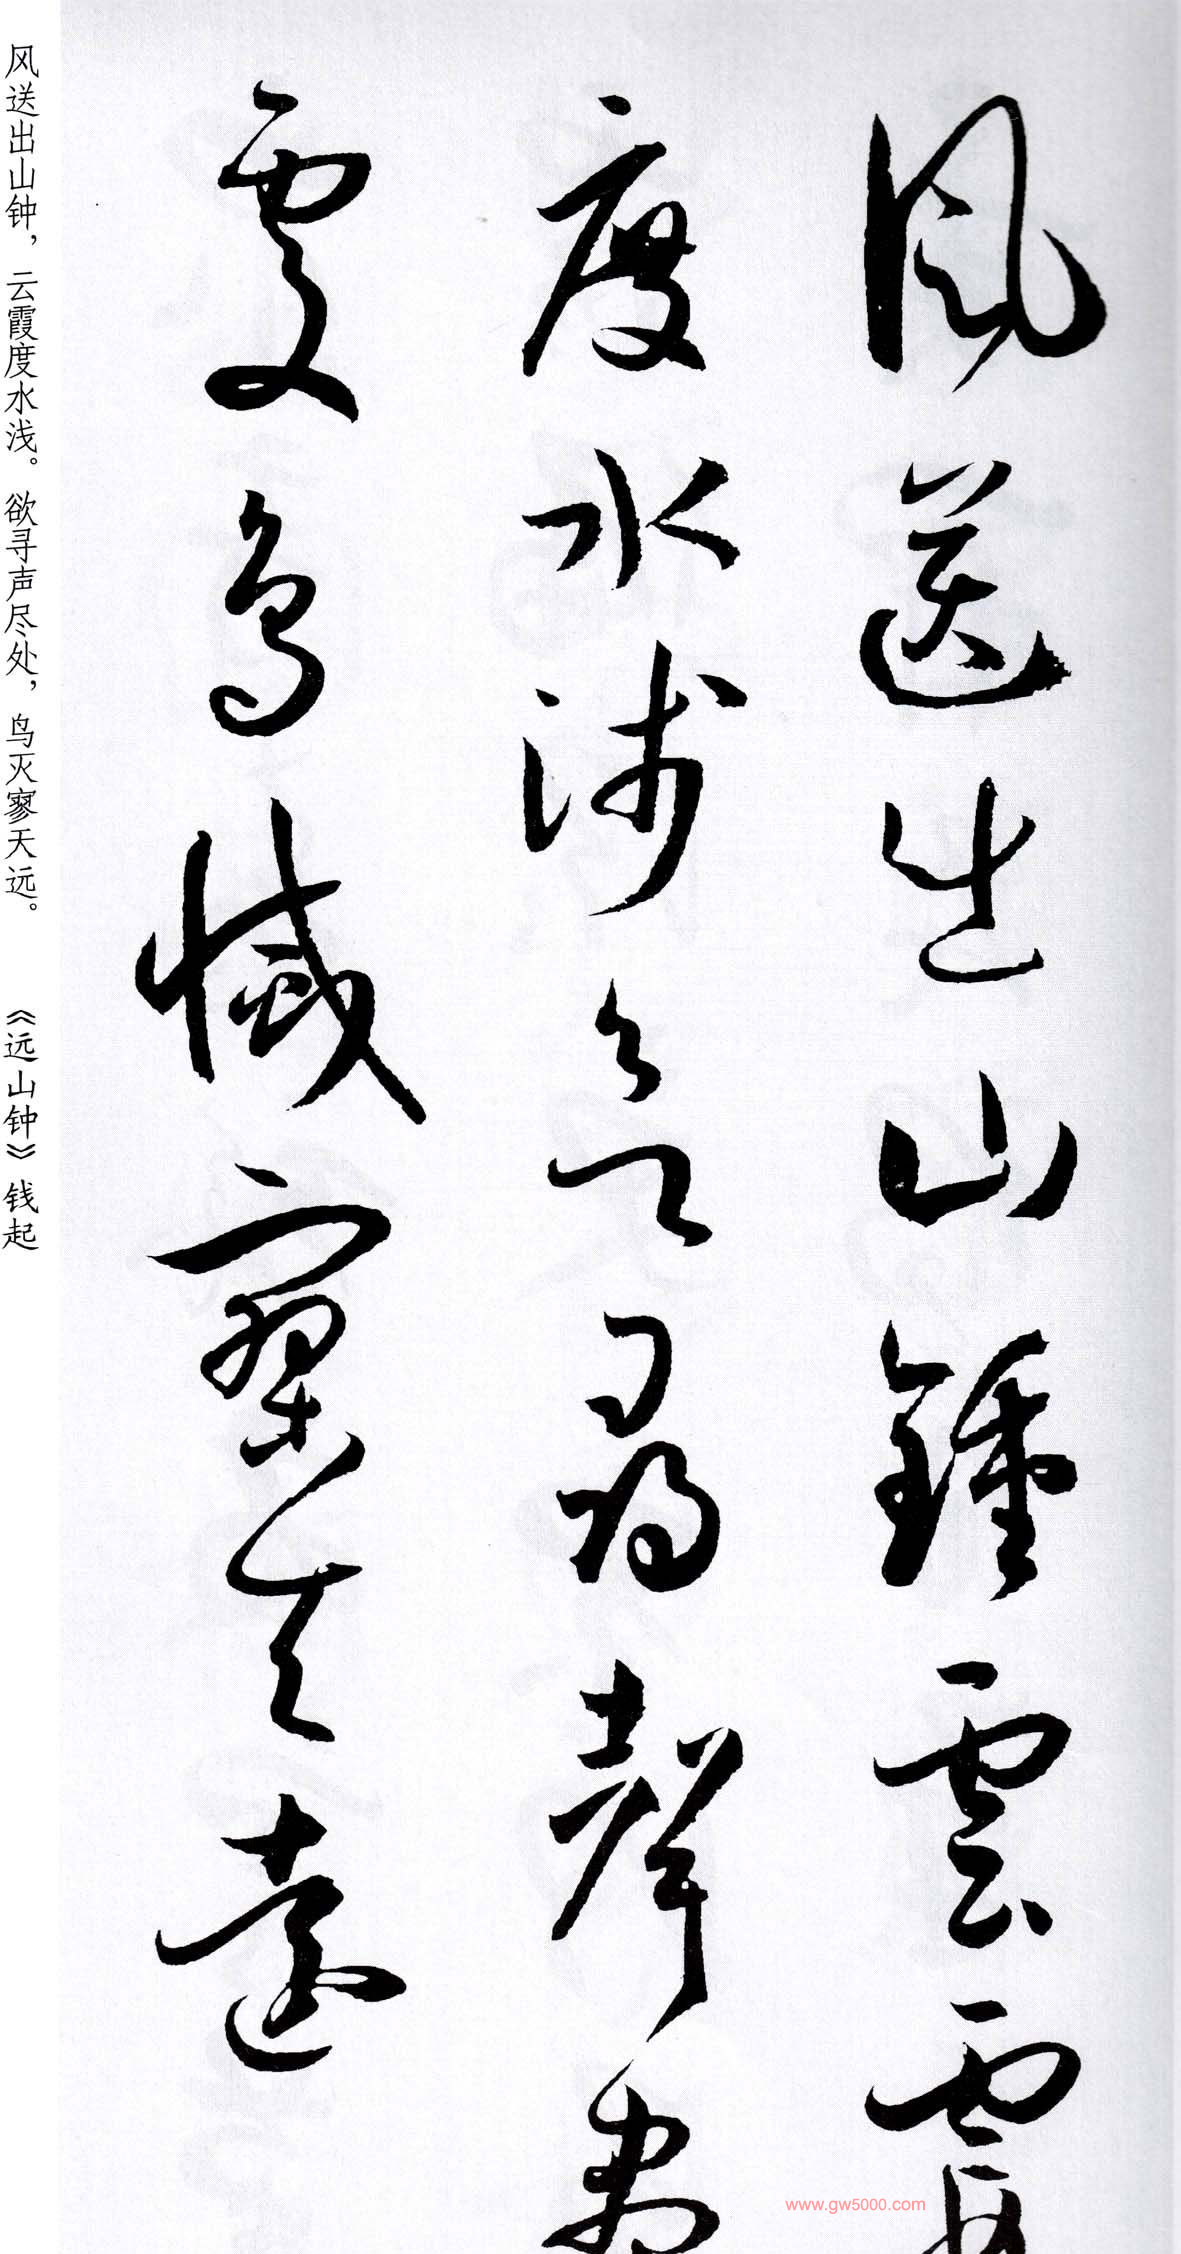 風送出山鍾雲霞
度水淺欲尋聲盡
處鳥滅寥天遠
风送出山钟，云霞度水浅。欲寻声尽处，鸟灭寥天远。 《远山钟》钱起
www.gw5000.com